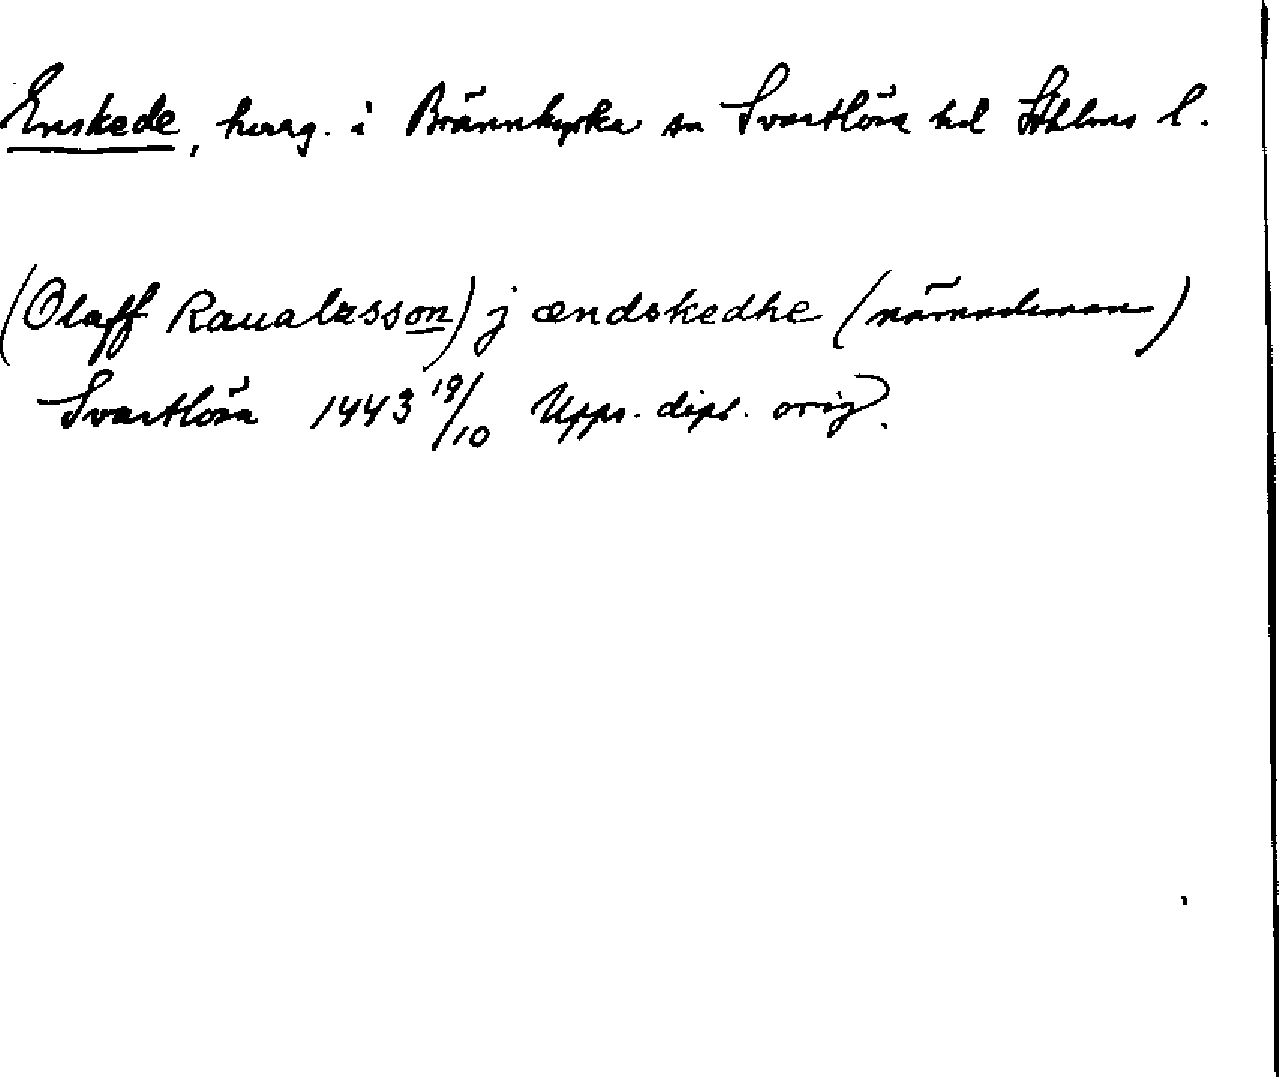 Enskede, herrg. i Brännkyrka sn Svartlösa hd Sthlms l.
(Olaff Raualzsson) j ændskedhe (nämndeman)
Svartlösa 1443 19/10 Upps. dipl. orig.